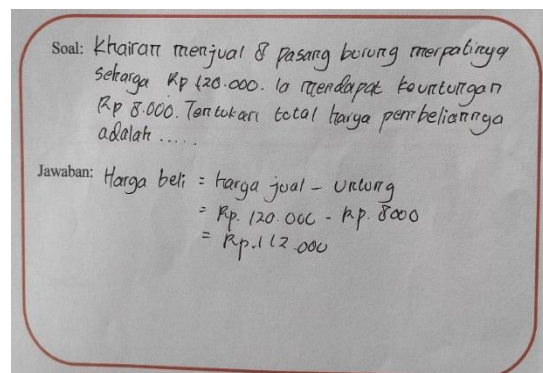 Soal: Khairan menjual 8 pasang burung merpatinya
seharga Rp 120.000. Ia mendapat keuntungan
Rp 8.000. Tentukan total harga pembeliannya
adalah .....
Jawaban: Harga beli = harga jual - untung
= Rp. 120.000 - Rp. 8000
= Rp.112.000